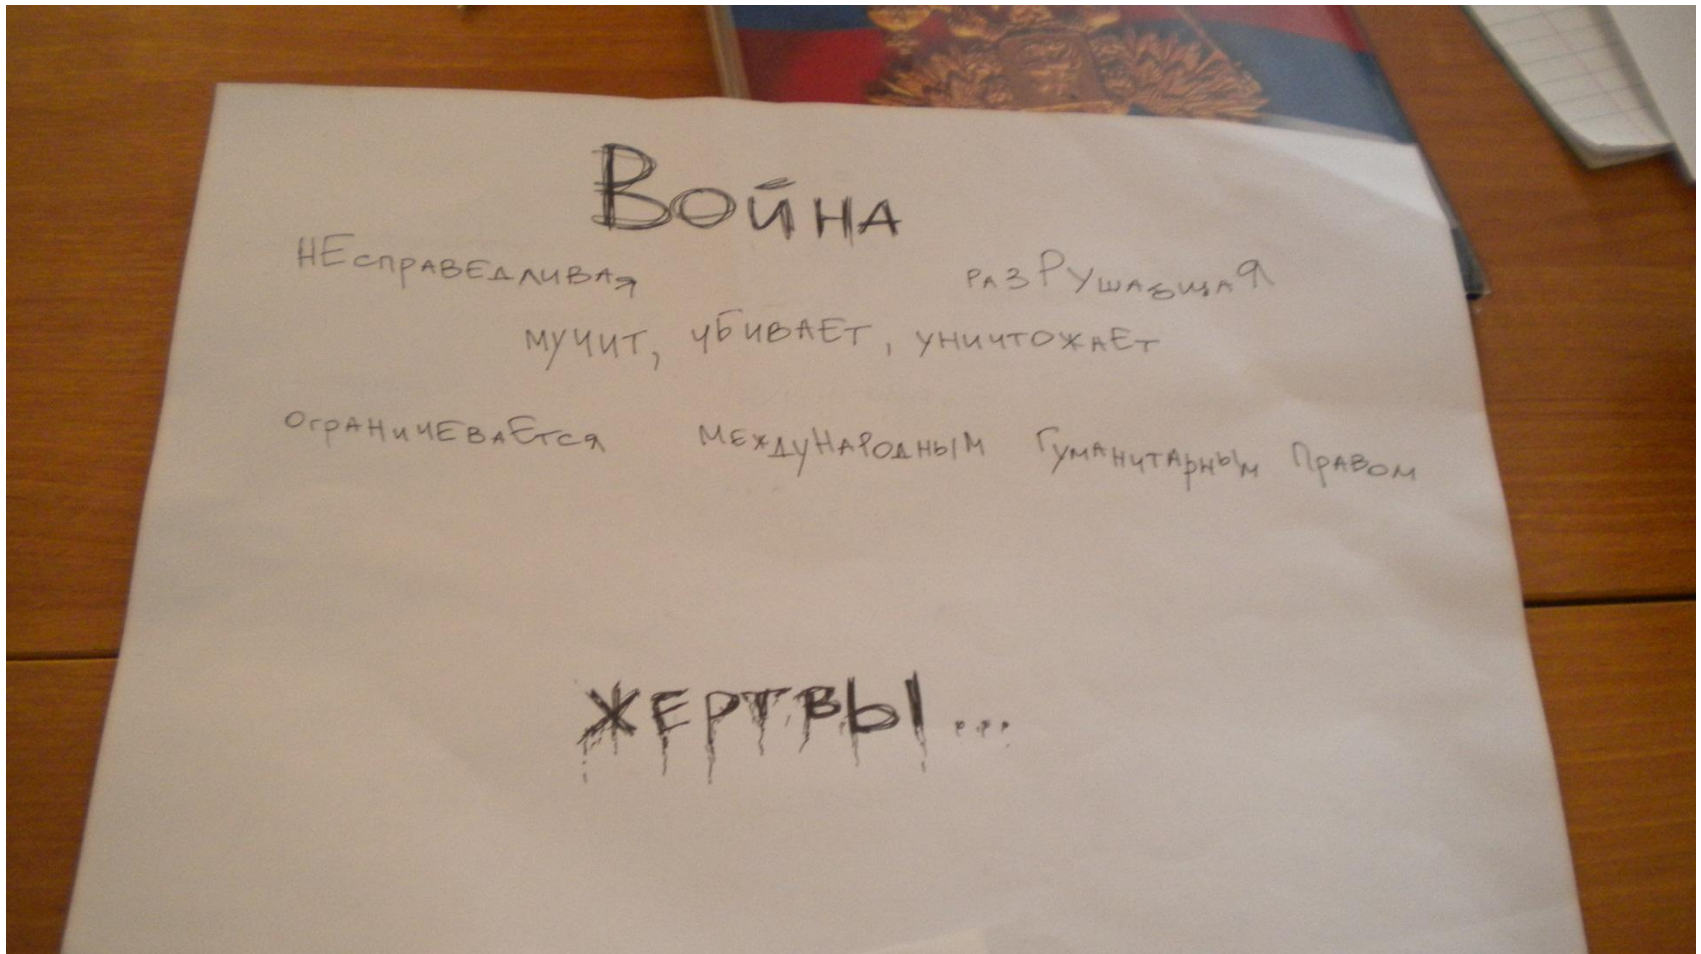 Война
НЕсПРАВЕДЛИВАЯ РАЗРУШАющАЯ
МУЧИТ, УБИВАЕТ, УНИЧТОЖАЕТ
ОгРАНИЧЕВАЕТСЯ МЕЖДУНАРОДНЫМ ГУМАНИТАРНЫМ ПРАВОМ
ЖЕРТВЫ...